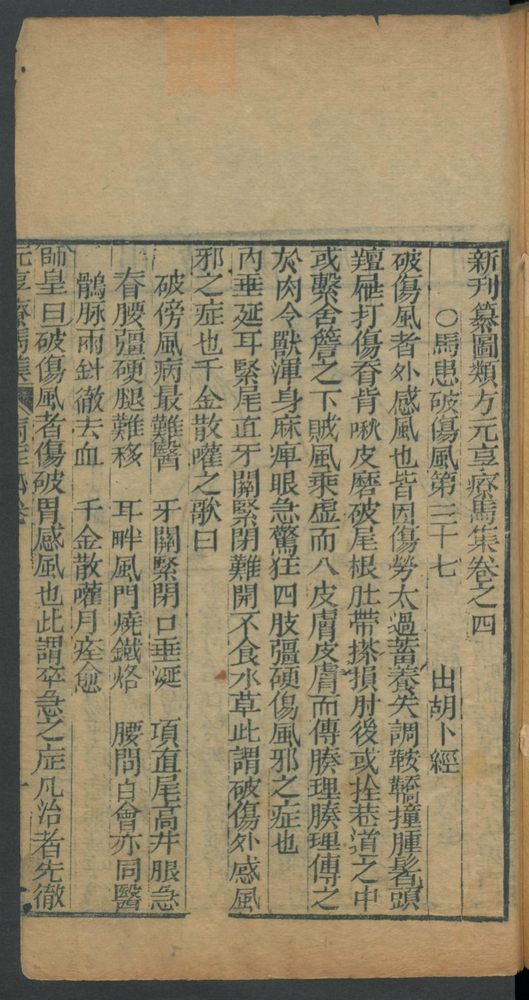 新刊纂圖類方元亨療馬集卷之四
○馬患破傷風第三十七 出胡卜經
破傷風者外感風也皆因傷勞太過蓄養失調鞍鞽撞腫鬐頭
羶屜打傷脊背啾皮磨破尾根肚帶搽損肘後或拴巷道之中
或繫舍簷之下賊風乘虛而入皮膚皮膚而傳腠理腠理傳之
於肉令獸渾身麻痺眼急驚狂四肢彊硬傷風邪之症也
內垂延耳緊尾直牙關緊閉難開不食水草此謂破傷外感風
邪之症也千金散嚾之歌曰
破傍風病最難醫 牙關緊閉口垂涎 項直尾高并眼急
脊腰彊硬腿難移 耳畔風門燒鐵烙 腰間百會亦同醫
鶻脉兩針徹去血 千金散嚾月痊愈
師皇曰破傷風者傷破胃感風也此謂卒急之症凡治者先徹
元亨療馬集 卷 十